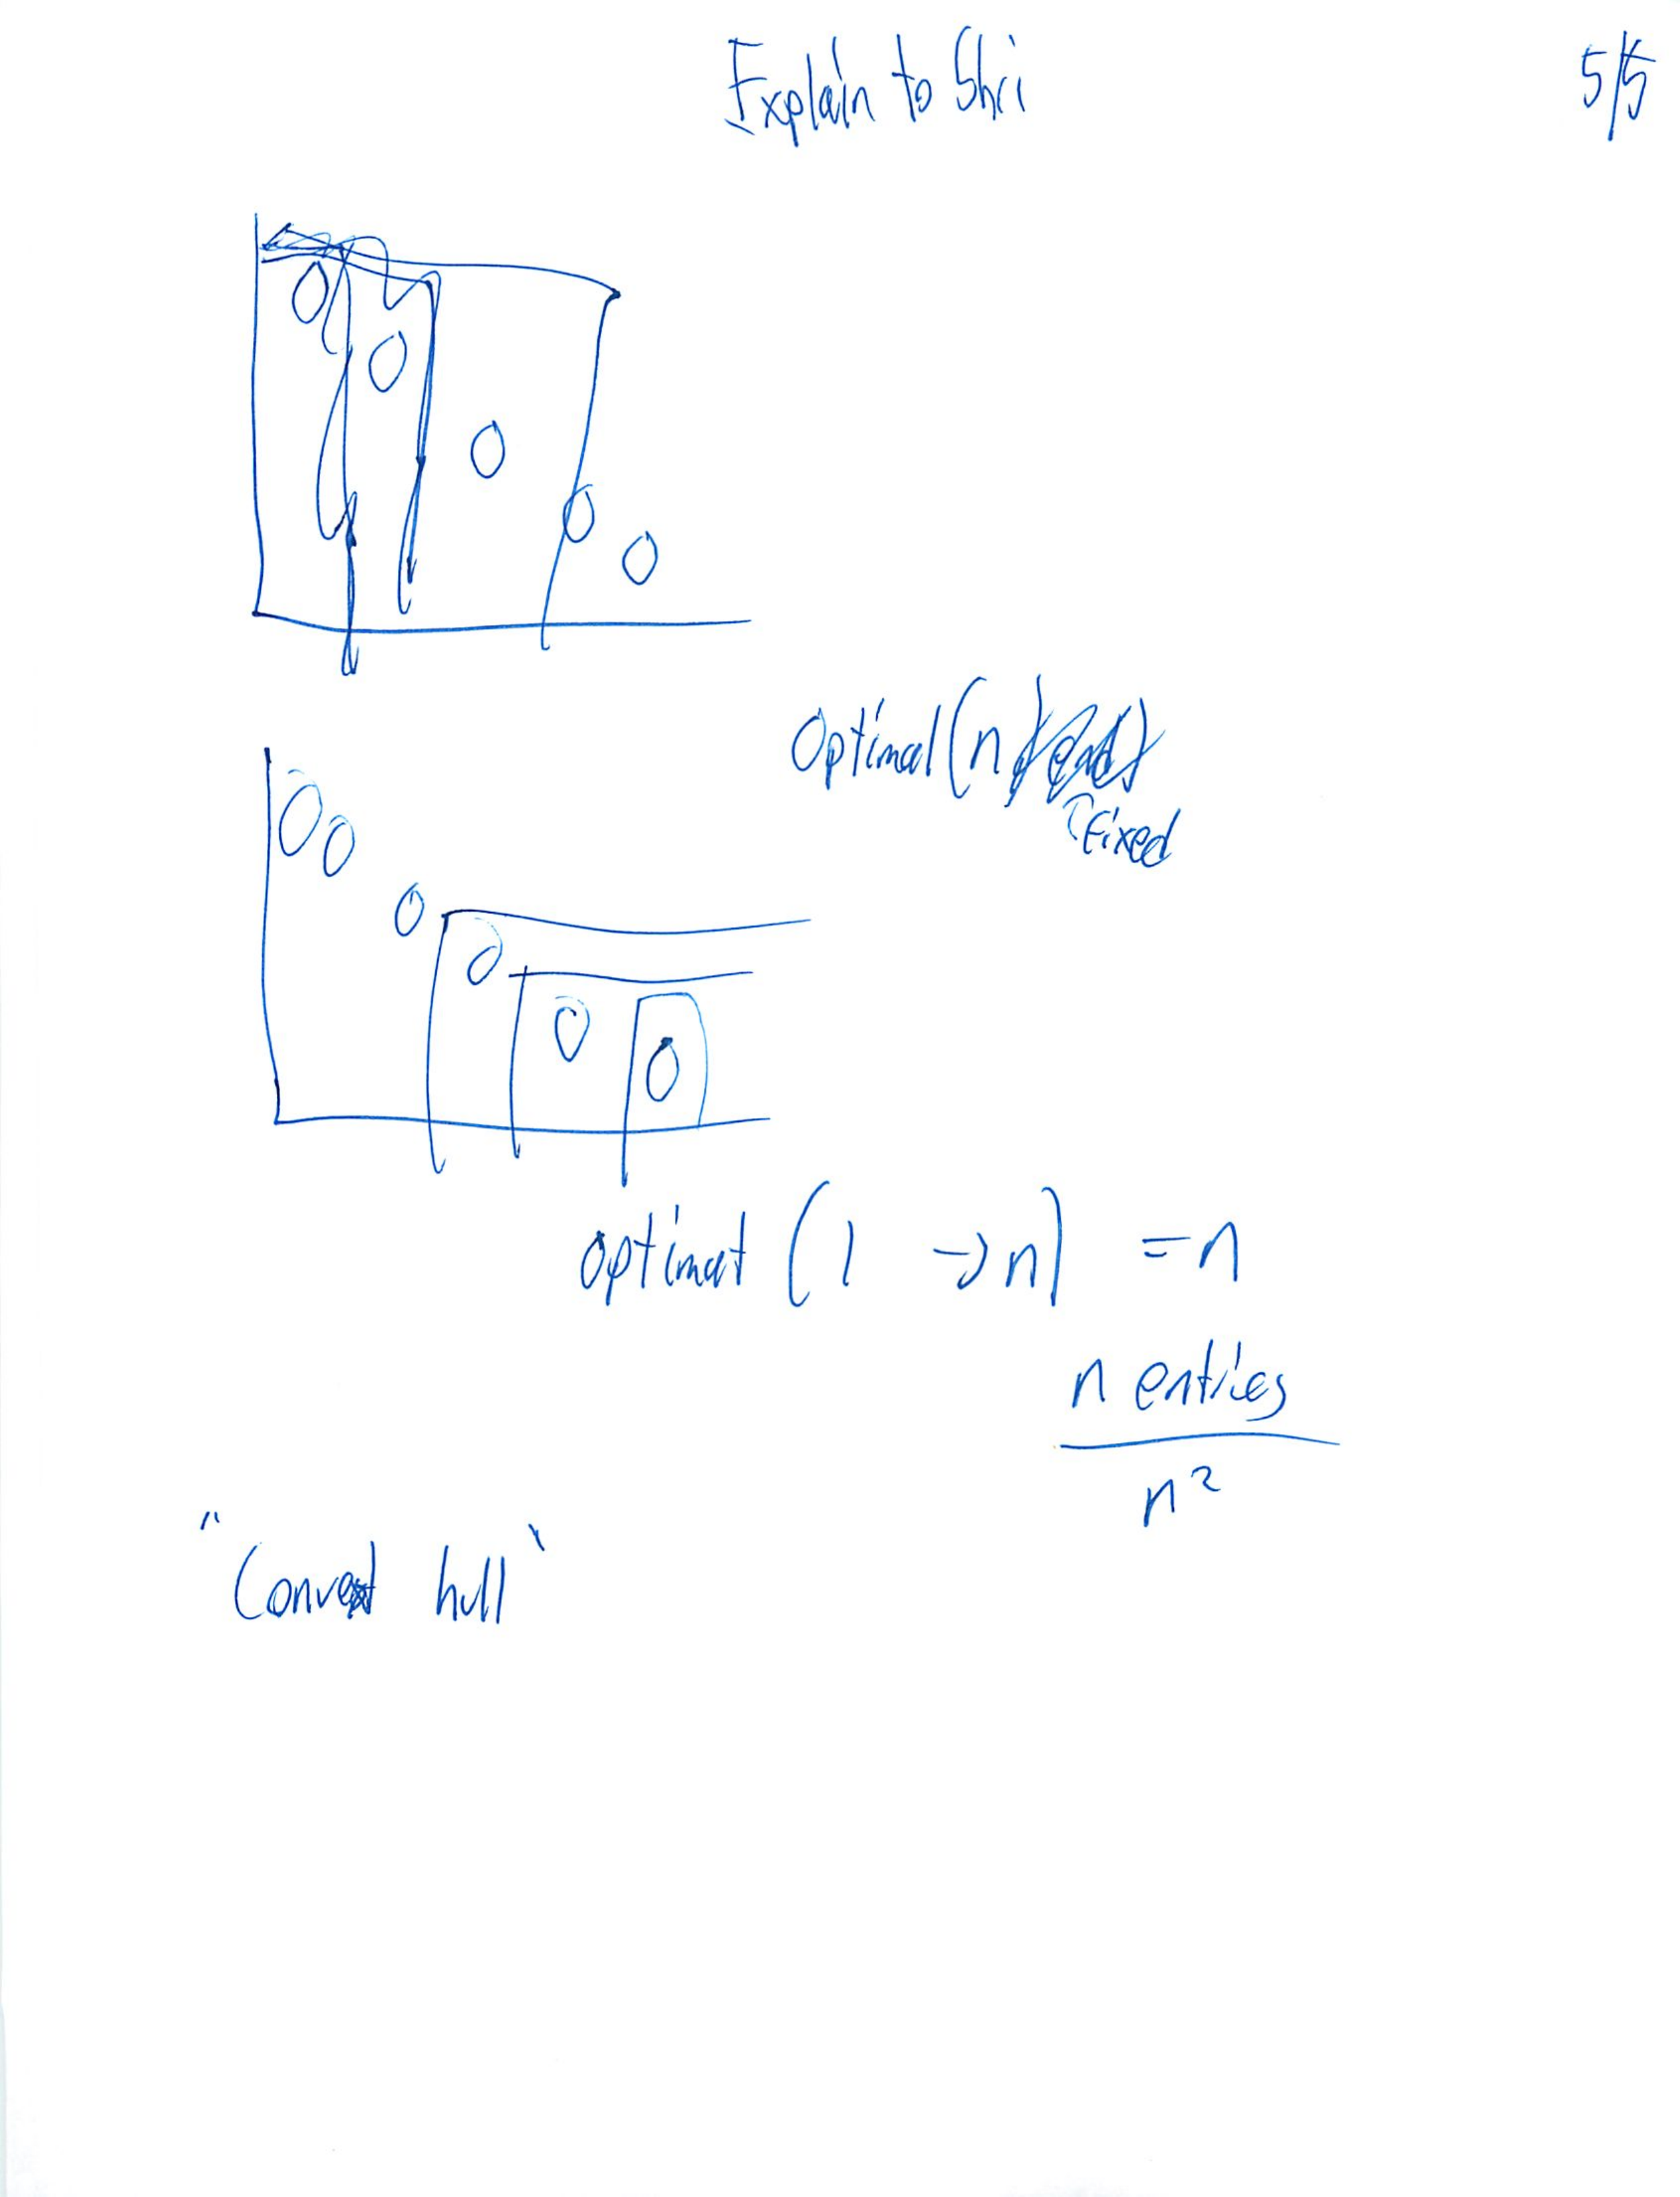 Explain to Shri
5/5
Optimal (n
Fixed
Optimat (1 → n) = n
n entries
n²
"Convex hull"